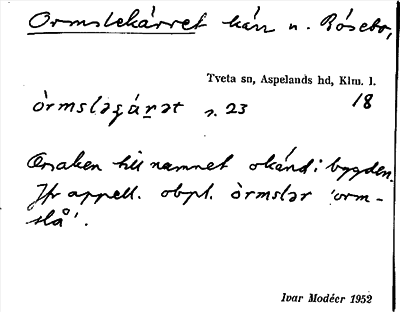 Ormslekärret kärr n. Råsebo,
Tveta sn, Aspelands hd, Klm. l.
òrmsləɕáṟət s. 23 18
Orsaken till namnet okänd i bygden.
Jfr appell. obpl. òrmslər 'orm-
slå'.
Ivar Modéer 1952